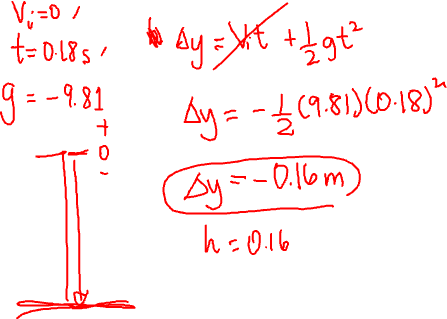 Vi=0
t=0.18s
g=-9.81
+
0
-
Δy = Vit + 1/2 gt²
Δy = - 1/2 (9.81)(0.18)²
Δy = -0.16m
h = 0.16